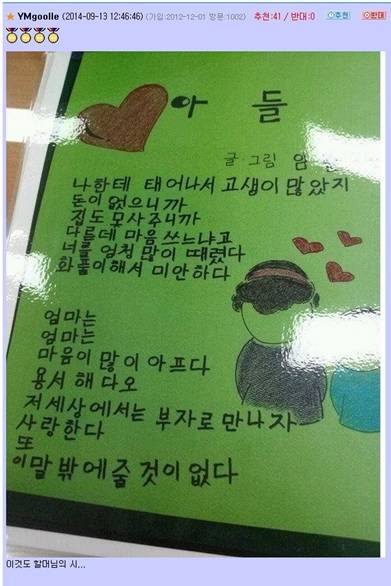 ★ YMgoolle (2014-09-13 12:46:46) (가입:2012-12-01 방문:1002) 추천:41 / 반대:0 추천 반대
아들
글 그림
나한테 태어나서 고생이 많았지
돈이 없으니까
집도 못사주니까
다른데 마음 쓰느냐고
너를 엄청 많이 때렸다
화풀이해서 미안하다
엄마는
엄마는
마음이 많이 아프다
용서 해 다오
저 세상에서는 부자로 만나자
사랑한다
또
이말 밖에 줄 것이 없다
이것도 할머님의 시...